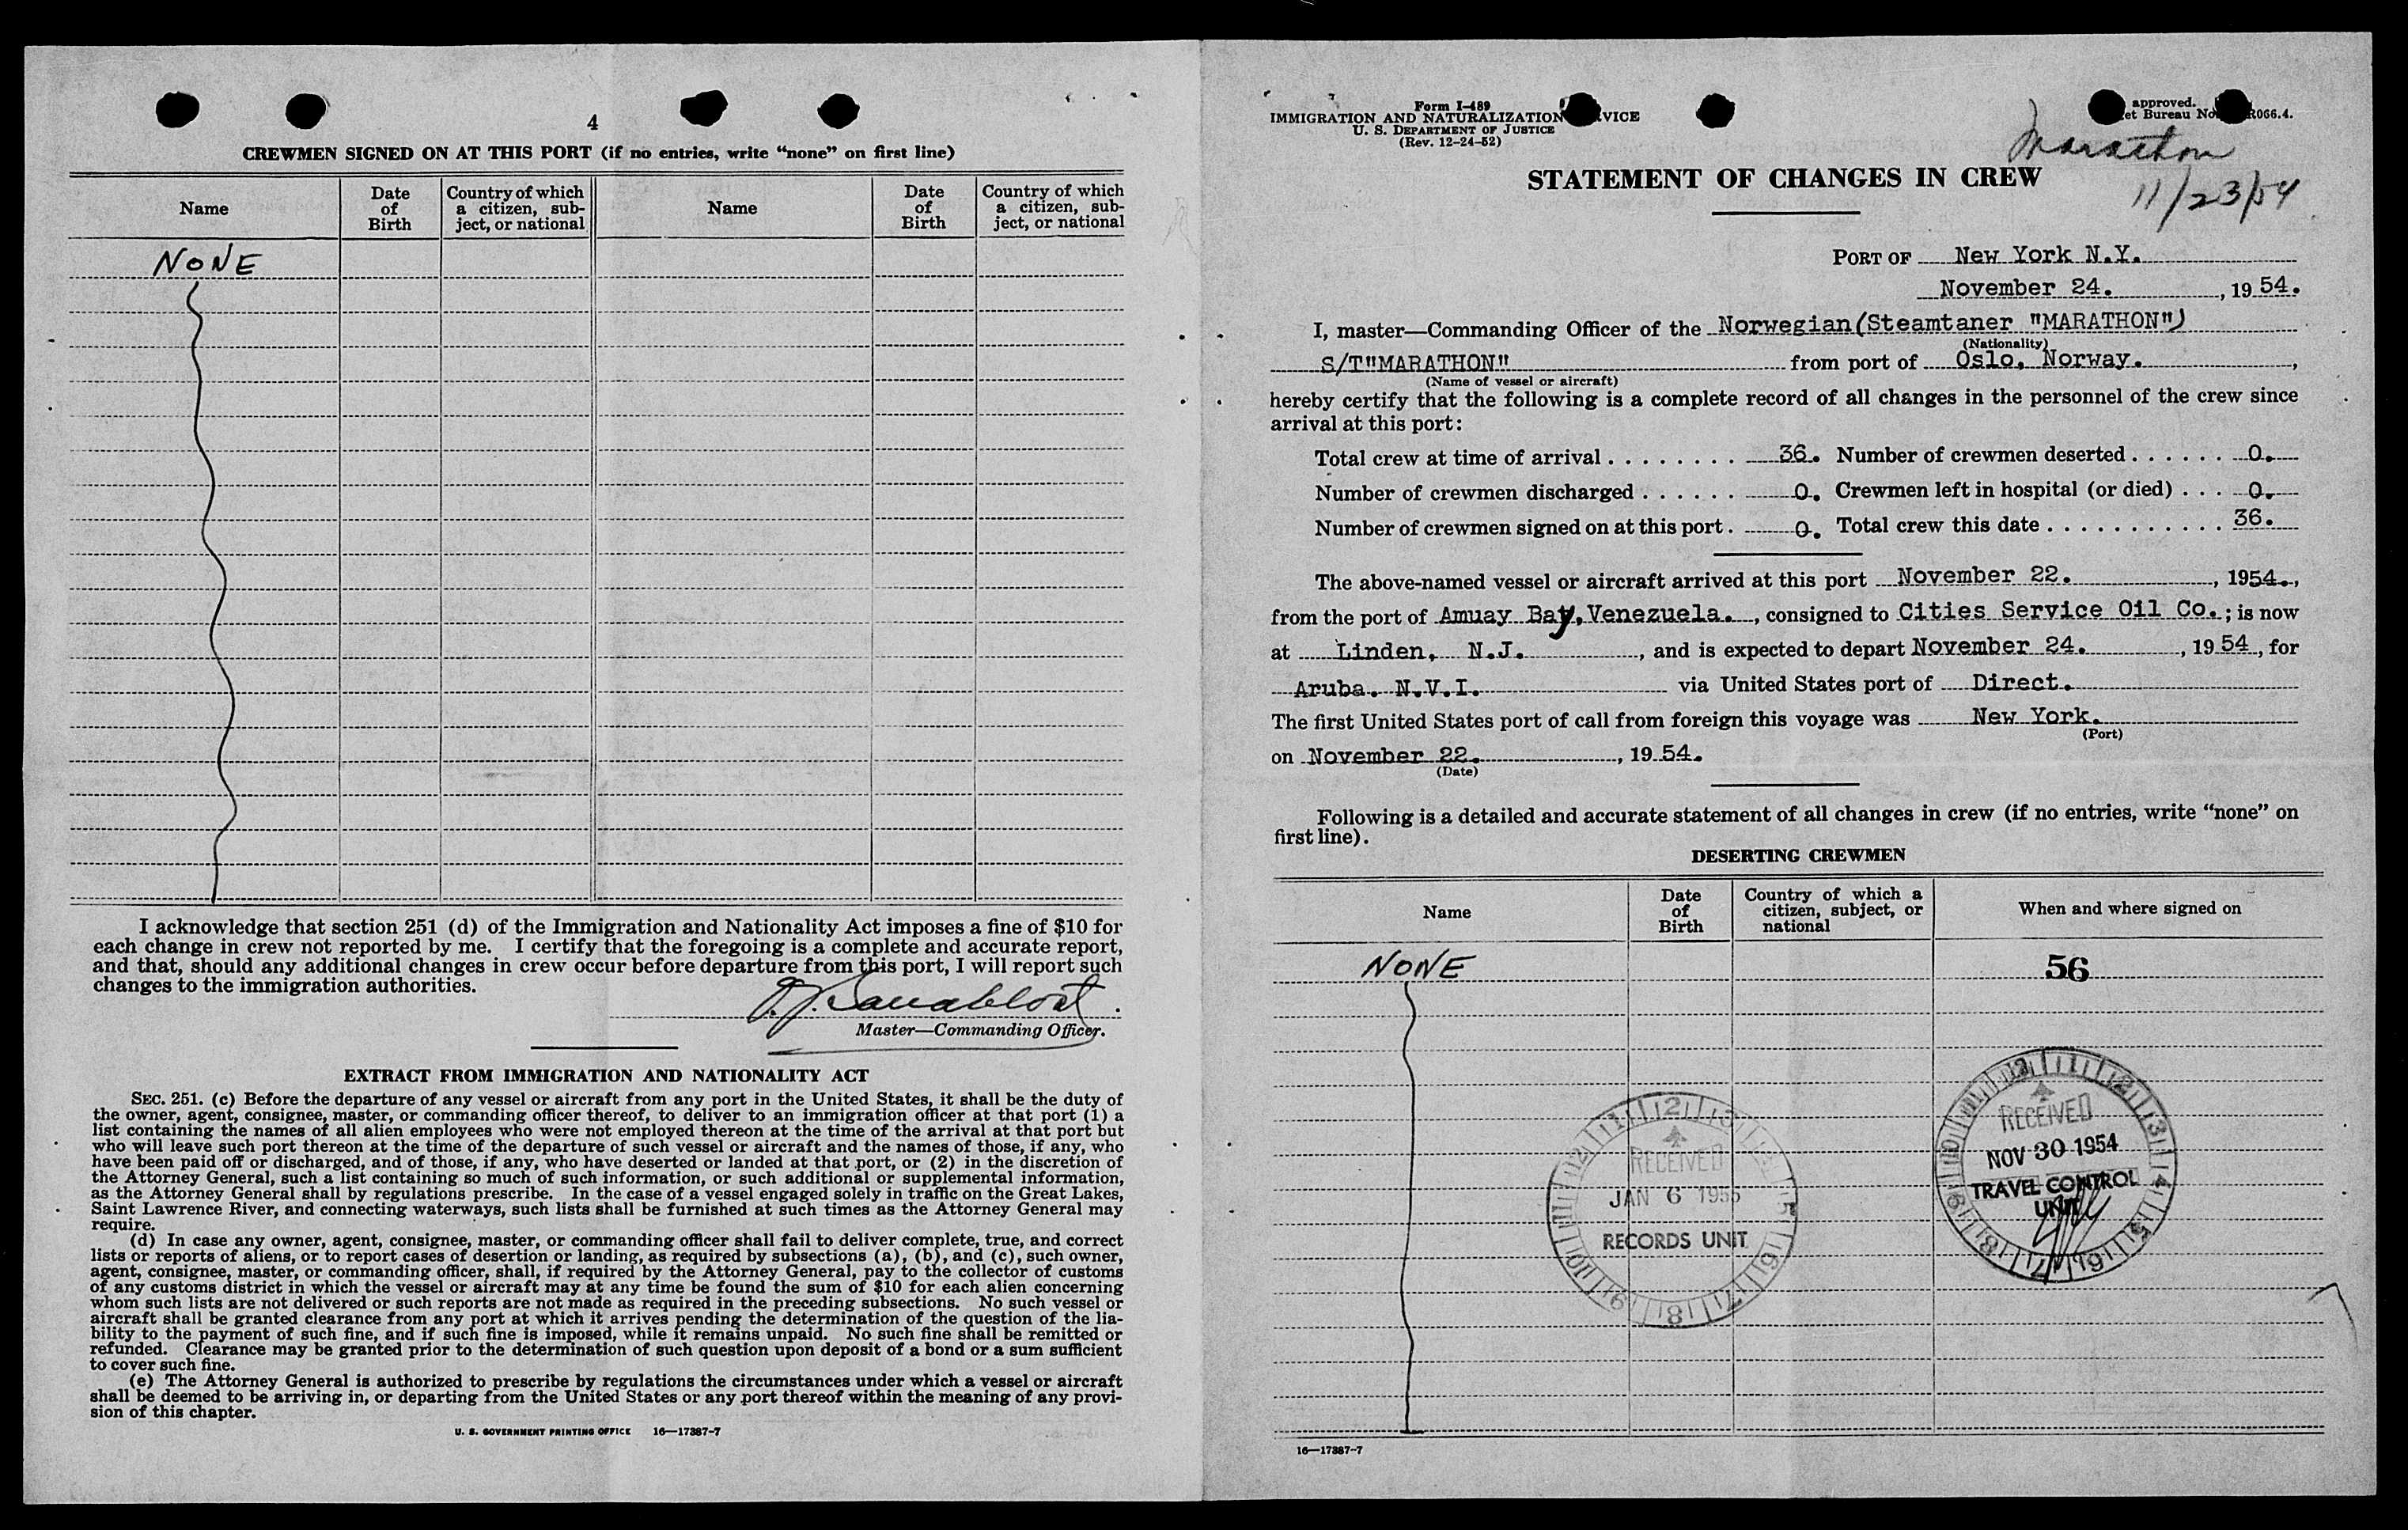 4
CREWMEN SIGNED ON AT THIS PORT (if no entries, write "none" on first line)
Name
Date of Birth
Country of which a citizen, subject, or national
Name
Date of Birth
Country of which a citizen, subject, or national
NONE
I acknowledge that section 251 (d) of the Immigration and Nationality Act imposes a fine of $10 for
each change in crew not reported by me. I certify that the foregoing is a complete and accurate report,
and that, should any additional changes in crew occur before departure from this port, I will report such
changes to the immigration authorities.
Master—Commanding Officer.
EXTRACT FROM IMMIGRATION AND NATIONALITY ACT
SEC. 251. (c) Before the departure of any vessel or aircraft from any port in the United States, it shall be the duty of
the owner, agent, consignee, master, or commanding officer thereof, to deliver to an immigration officer at that port (1) a
list containing the names of all alien employees who were not employed thereon at the time of the arrival at that port but
who will leave such port thereon at the time of the departure of such vessel or aircraft and the names of those, if any, who
have been paid off or discharged, and of those, if any, who have deserted or landed at that port, or (2) in the discretion of
the Attorney General, such a list containing so much of such information, or such additional or supplemental information,
as the Attorney General shall by regulations prescribe. In the case of a vessel engaged solely in traffic on the Great Lakes,
Saint Lawrence River, and connecting waterways, such lists shall be furnished at such times as the Attorney General may
require.
(d) In case any owner, agent, consignee, master, or commanding officer shall fail to deliver complete, true, and correct
lists or reports of aliens, or to report cases of desertion or landing, as required by subsections (a), (b), and (c), such owner,
agent, consignee, master, or commanding officer, shall, if required by the Attorney General, pay to the collector of customs
of any customs district in which the vessel or aircraft may at any time be found the sum of $10 for each alien concerning
whom such lists are not delivered or such reports are not made as required in the preceding subsections. No such vessel or
aircraft shall be granted clearance from any port at which it arrives pending the determination of the question of the lia-
bility to the payment of such fine, and if such fine is imposed, while it remains unpaid. No such fine shall be remitted or
refunded. Clearance may be granted prior to the determination of such question upon deposit of a bond or a sum sufficient
to cover such fine.
(e) The Attorney General is authorized to prescribe by regulations the circumstances under which a vessel or aircraft
shall be deemed to be arriving in, or departing from the United States or any port thereof within the meaning of any provi-
sion of this chapter.
U. S. GOVERNMENT PRINTING OFFICE 16—17387-7
Form I-489
IMMIGRATION AND NATURALIZATION VICE
U. S. DEPARTMENT OF JUSTICE
(Rev. 12-24-52)
approved.
et Bureau No. R066.4.
Marathon
11/23/54
STATEMENT OF CHANGES IN CREW
PORT OF New York N.Y.
November 24. , 19 54.
I, master—Commanding Officer of the Norwegian(Steamtaner "MARATHON")
(Nationality)
S/T"MARATHON" from port of Oslo, Norway. ,
(Name of vessel or aircraft)
hereby certify that the following is a complete record of all changes in the personnel of the crew since
arrival at this port:
Total crew at time of arrival . . . . . . . . 36. Number of crewmen deserted . . . . . . 0.
Number of crewmen discharged . . . . . . 0. Crewmen left in hospital (or died) . . . 0.
Number of crewmen signed on at this port . 0. Total crew this date . . . . . . . . . . . 36.
The above-named vessel or aircraft arrived at this port November 22. , 1954.,
from the port of Amuay Bay, Venezuela. , consigned to Cities Service Oil Co. ; is now
at Linden, N.J. , and is expected to depart November 24. , 19 54 , for
Aruba. N.V.I. via United States port of Direct.
The first United States port of call from foreign this voyage was New York.
(Port)
on November 22. , 19 54.
(Date)
Following is a detailed and accurate statement of all changes in crew (if no entries, write "none" on
first line).
DESERTING CREWMEN
Name
Date of Birth
Country of which a citizen, subject, or national
When and where signed on
NONE
56
RECEIVED
NOV 30 1954
TRAVEL CONTROL
UNIT
RECEIVED
JAN 6 1955
RECORDS UNIT
16—17387-7